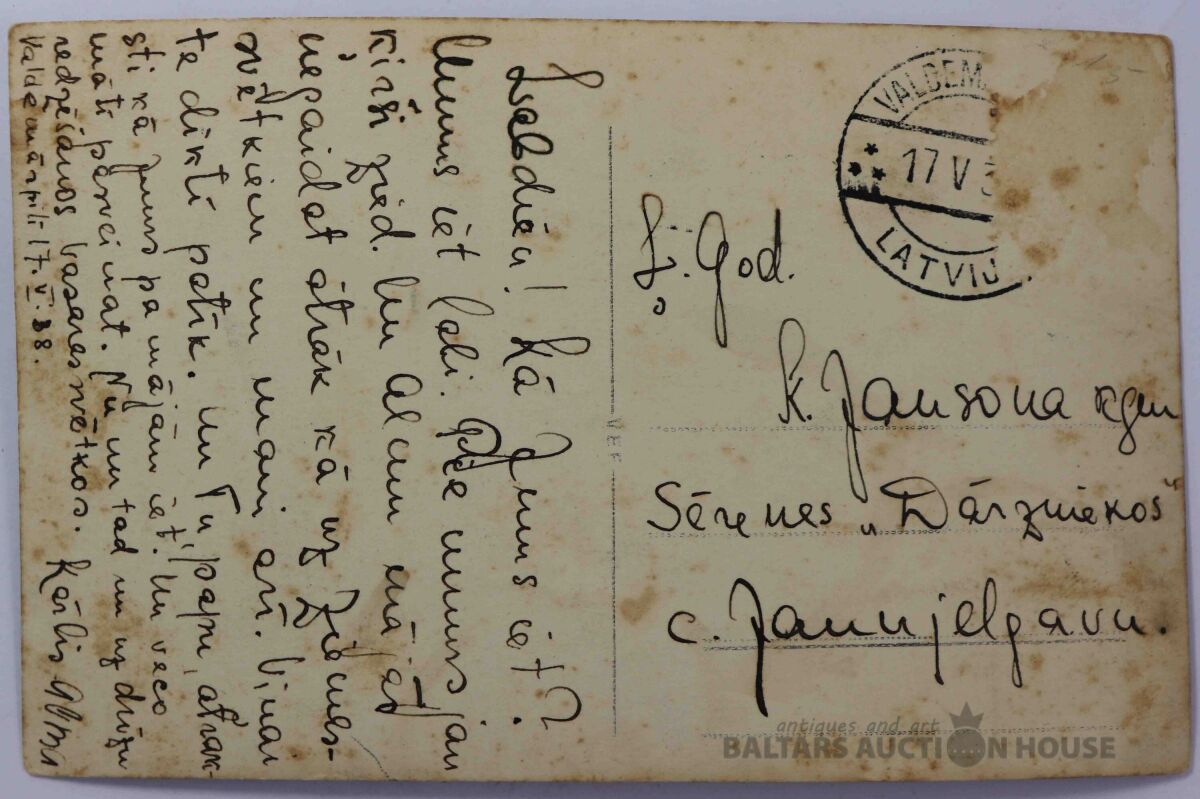 Labdien! Kā Jums iet?
Mums iet labi. Pie mums jau
ķirši zied. Un Alma mājās
negaidat ātrāk kā uz Ziemas-
svētkiem un mani arī. Viņai
te dikti patīk. un Tu, papu, atrak-
sti kā Jums pa mājām iet. Un veco
māti pārcinat. Nu un tad un uz drīzu
redzēšanos Vasarassvētkos. Kārlis
Valdemārpilī 17. V. 38.
VALDEM
17 V 3
LATVIJ
Ļ. God.
K. Jansona kgm
Sērenes „Dārzniekos"
c. Jaunjelgavu.
VEF
antiques and art
BALTARS AUCTION HOUSE